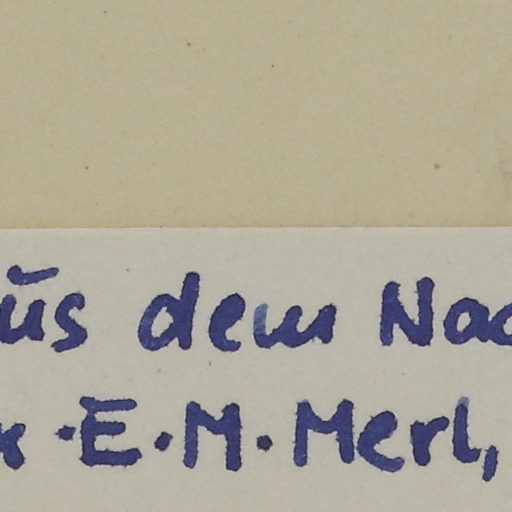 us dem Nac
r. E. M. Merl,